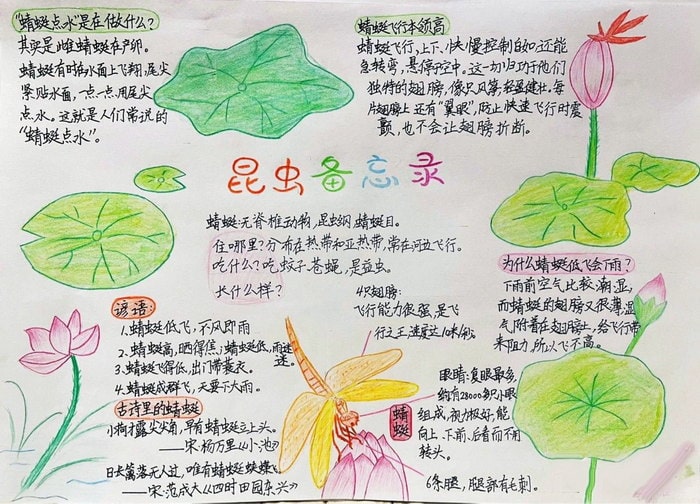 "蜻蜓点水"是在做什么？
其实是雌蜻蜓在产卵。
蜻蜓有时在水面上飞翔，尾尖
紧贴水面，一点一点用尾尖
点水。这就是人们常说的
"蜻蜓点水"。
蜻蜓飞行本领高
蜻蜓飞行，上下、快慢控制自如，还能
急转弯，悬停空中。这一切归功于他们
独特的翅膀，像只风筝，轻盈健壮。每
片翅膀上还有"翼眼"，防止快速飞行时震
颤，也不会让翅膀折断。
昆虫备忘录
蜻蜓：无脊椎动物，昆虫纲，蜻蜓目。
住哪里？分布在热带和亚热带，常在河边飞行。
吃什么？吃蚊子苍蝇，是益虫。
长什么样？
4只翅膀：
飞行能力很强，是飞
行之王，速度达10米/秒。
为什么蜻蜓低飞会下雨？
下雨前空气比较潮湿，
而蜻蜓的翅膀又很薄，湿
气附着在翅膀上，给飞行带
来阻力，所以飞不高。
谚语：
1.蜻蜓低飞，不风即雨
2.蜻蜓高，晒得焦；蜻蜓低，雨迷
迷。
3.蜻蜓飞得低，出门带蓑衣。
4.蜻蜓成群飞，天要下大雨。
古诗里的蜻蜓
小荷才露尖尖角，早有蜻蜓立上头。
——宋·杨万里《小池》
日长篱落无人过，唯有蜻蜓蛱蝶飞
——宋·范成大《四时田园杂兴》
蜻蜓
眼睛：复眼最多，
约有28000多只小眼
组成，视力极好，能
向上、下、前、后看而不用
转头。
6条腿，腿部有毛刺。